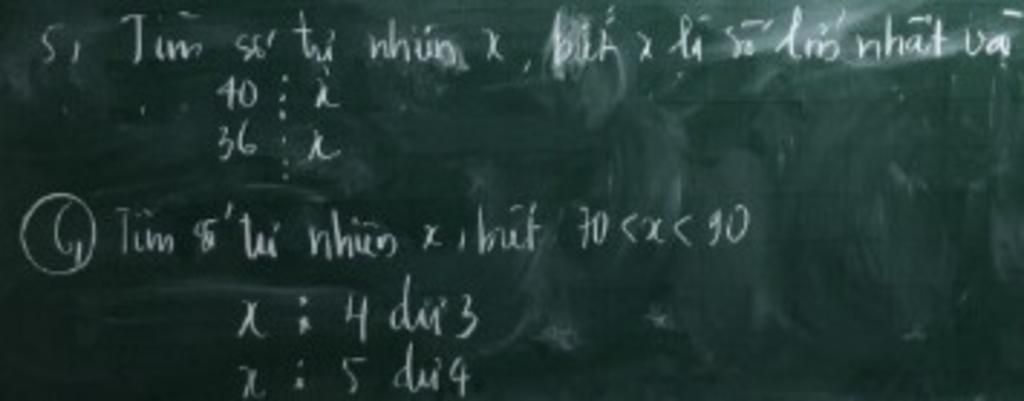 5, Tìm số tự nhiên x, biết x là số lớn nhất và
40 ⋮ x
36 ⋮ x
6, Tìm số tự nhiên x, biết 70 < x < 90
x ⋮ 4 dư 3
x ⋮ 5 dư 4